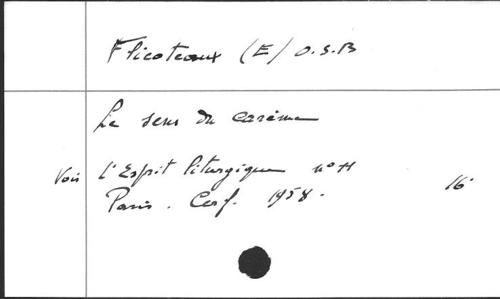 Flicoteaux (E) O.S.B
Le sens du carême
Voir L'Esprit liturgique n° 11
Paris. Cerf. 1958. 16°